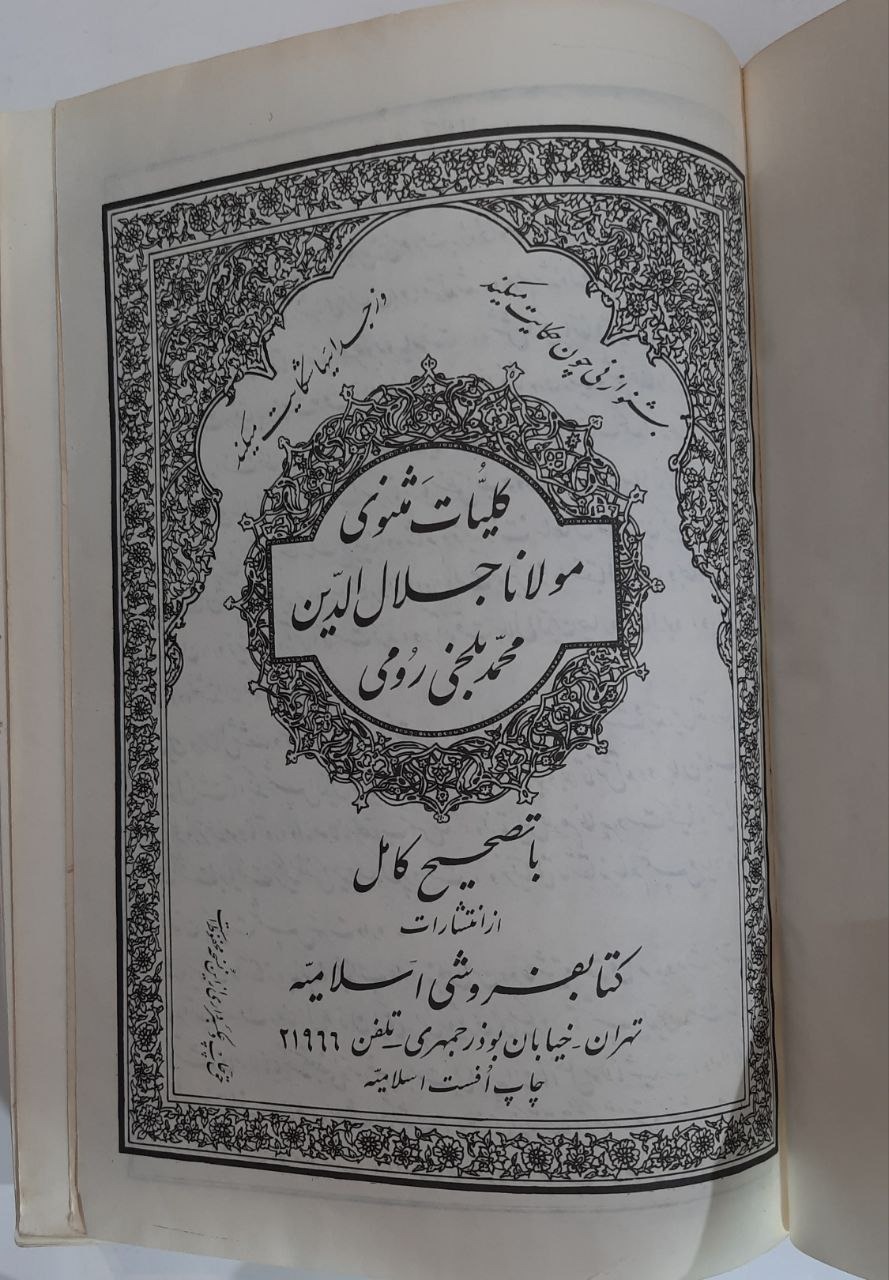 بشنو از نی چون حکایت میکند
وز جدائیها شکایت میکند
کلیّات مَثنوی
مولانا جلال الدّین
محمّد بلخی رُومی
با تصحیح کامل
از انتشارات
کتابفروشی اسلامیّه
تهران - خیابان بوذرجمهری - تلفن ۲۱۹۶۶
چاپ اُفست اسلامیّه